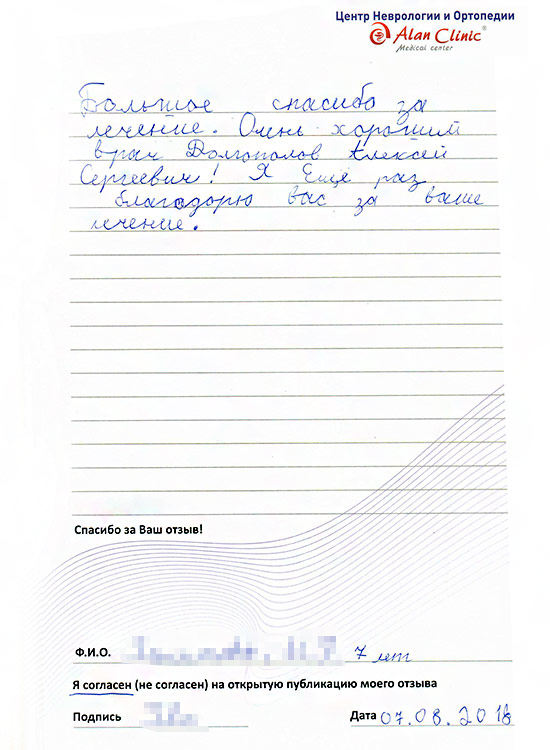 Центр Неврологии и Ортопедии
Alan Clinic®
Medical center
Большое спасибо за
лечение. Очень хороший
врач Долгополов Алексей
Сергеевич! Я Ещё раз
благодорю вас за ваше
лечение.
Спасибо за Ваш отзыв!
Ф.И.О. 7 лет
Я согласен (не согласен) на открытую публикацию моего отзыва
Подпись Дата 07.08.2018